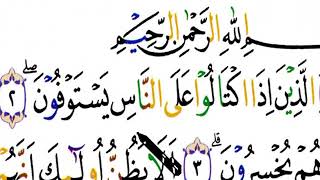 اللّٰهِ الرَّحْمٰنِ الرَّحِيْمِ
الَّذِيْنَ اِذَا اكْتَالُوْا عَلَى النَّاسِ يَسْتَوْفُوْنَۖ ٢
هُمْ يُخْسِرُوْنَۗ ٣ اَلَا يَظُنُّ اُولٰۤىِٕكَ اَنَّهُمْ